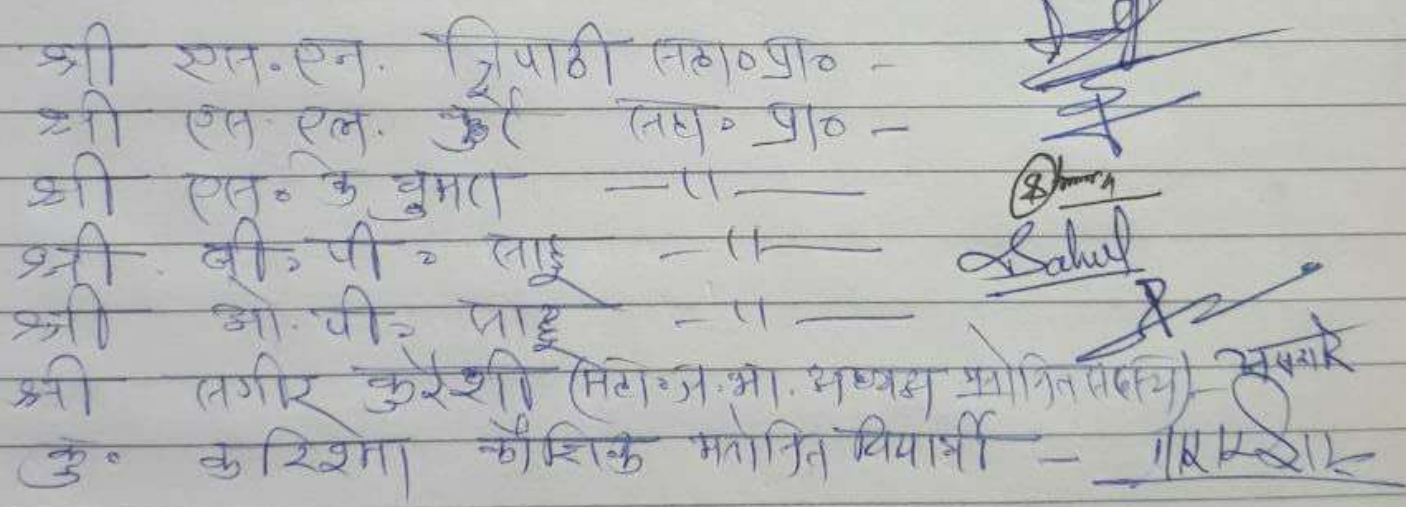 श्री एस.एन. त्रिपाठी सहा०प्रा० -
श्री एस. एल. कुर्रे सहा० प्रा० -
श्री एस. के घुमता —11—
श्री बी. पी. साहू —11— Sahu
श्री ओ. पी. साहू —11—
श्री सगीर कुरैशी (महा.ज.भा. अध्यक्ष मनोनित सदस्य) -
कु. करिश्मा कौशिक मनोनित विद्यार्थी -